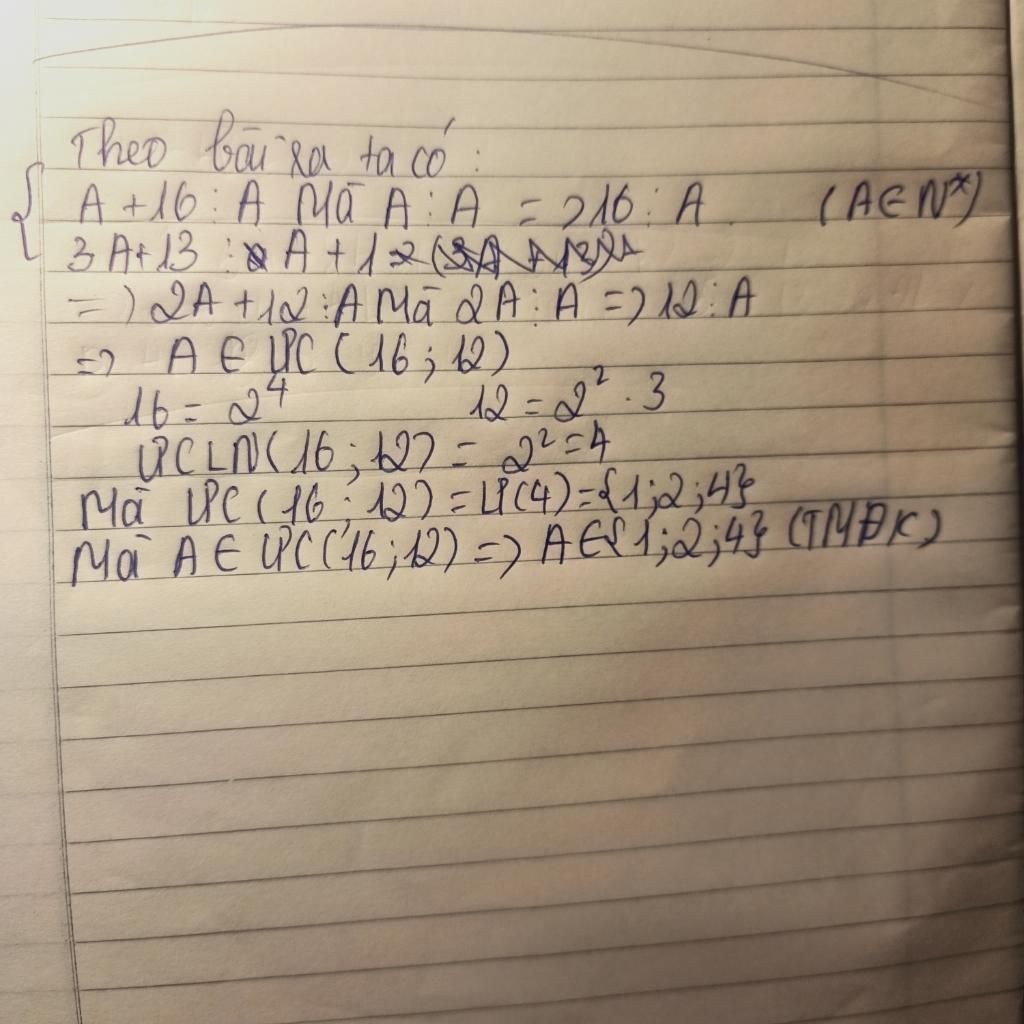 Theo bài ra ta có :
A + 16 : A Mà A : A => 16 : A (A ∈ N*)
3A + 13 : A + 1
=> 2A + 12 : A Mà 2A : A => 12 : A
=> A ∈ ƯC (16 ; 12)
16 = 2⁴ 12 = 2² . 3
ƯCLN (16 ; 12) = 2² = 4
Mà ƯC (16 ; 12) = Ư(4) = {1;2;4}
Mà A ∈ ƯC (16 ; 12) => A ∈ {1;2;4} (TMĐK)